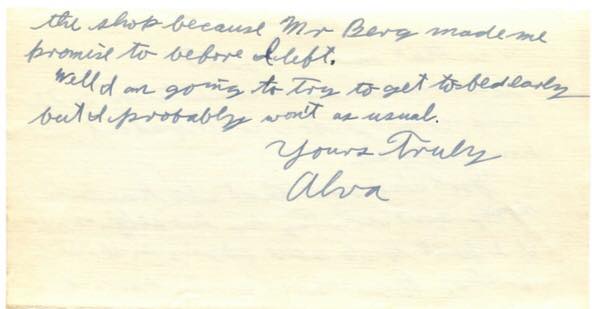 the shop because Mr Berg made me
promise to before I left.
Well I am going to try to get to bed early
but I probably won't as usual.
Yours Truly
Alva